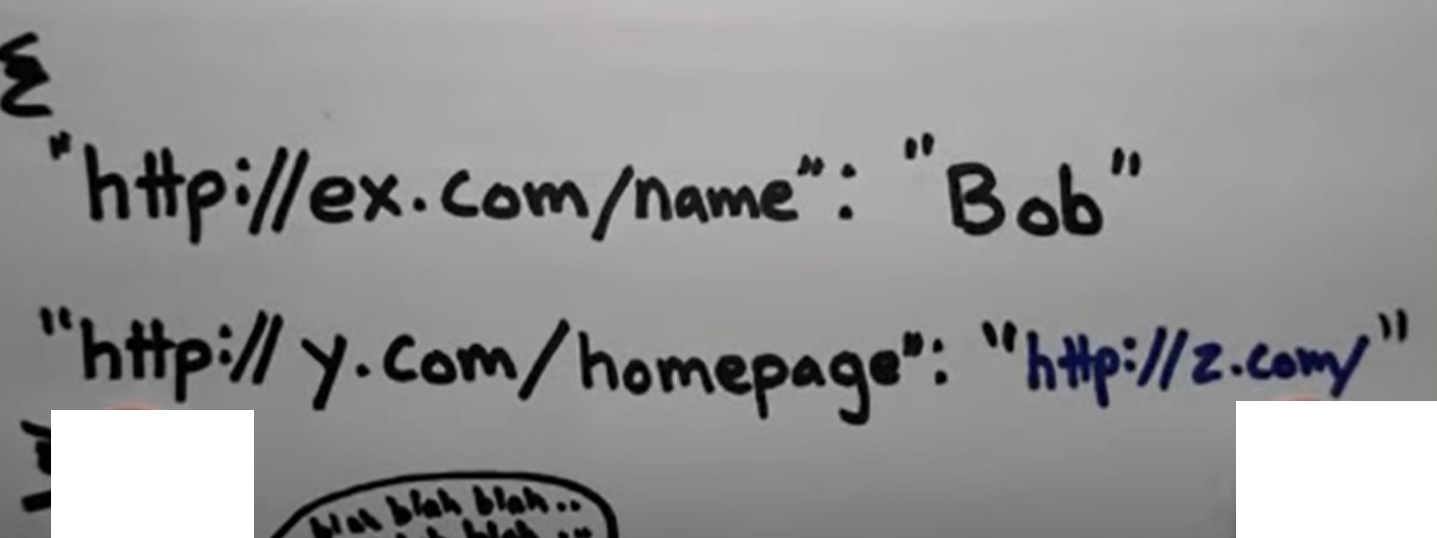 {
"http://ex.com/name": "Bob"
"http://y.com/homepage": "http://z.com/"
}
blah blah blah..
blah ...